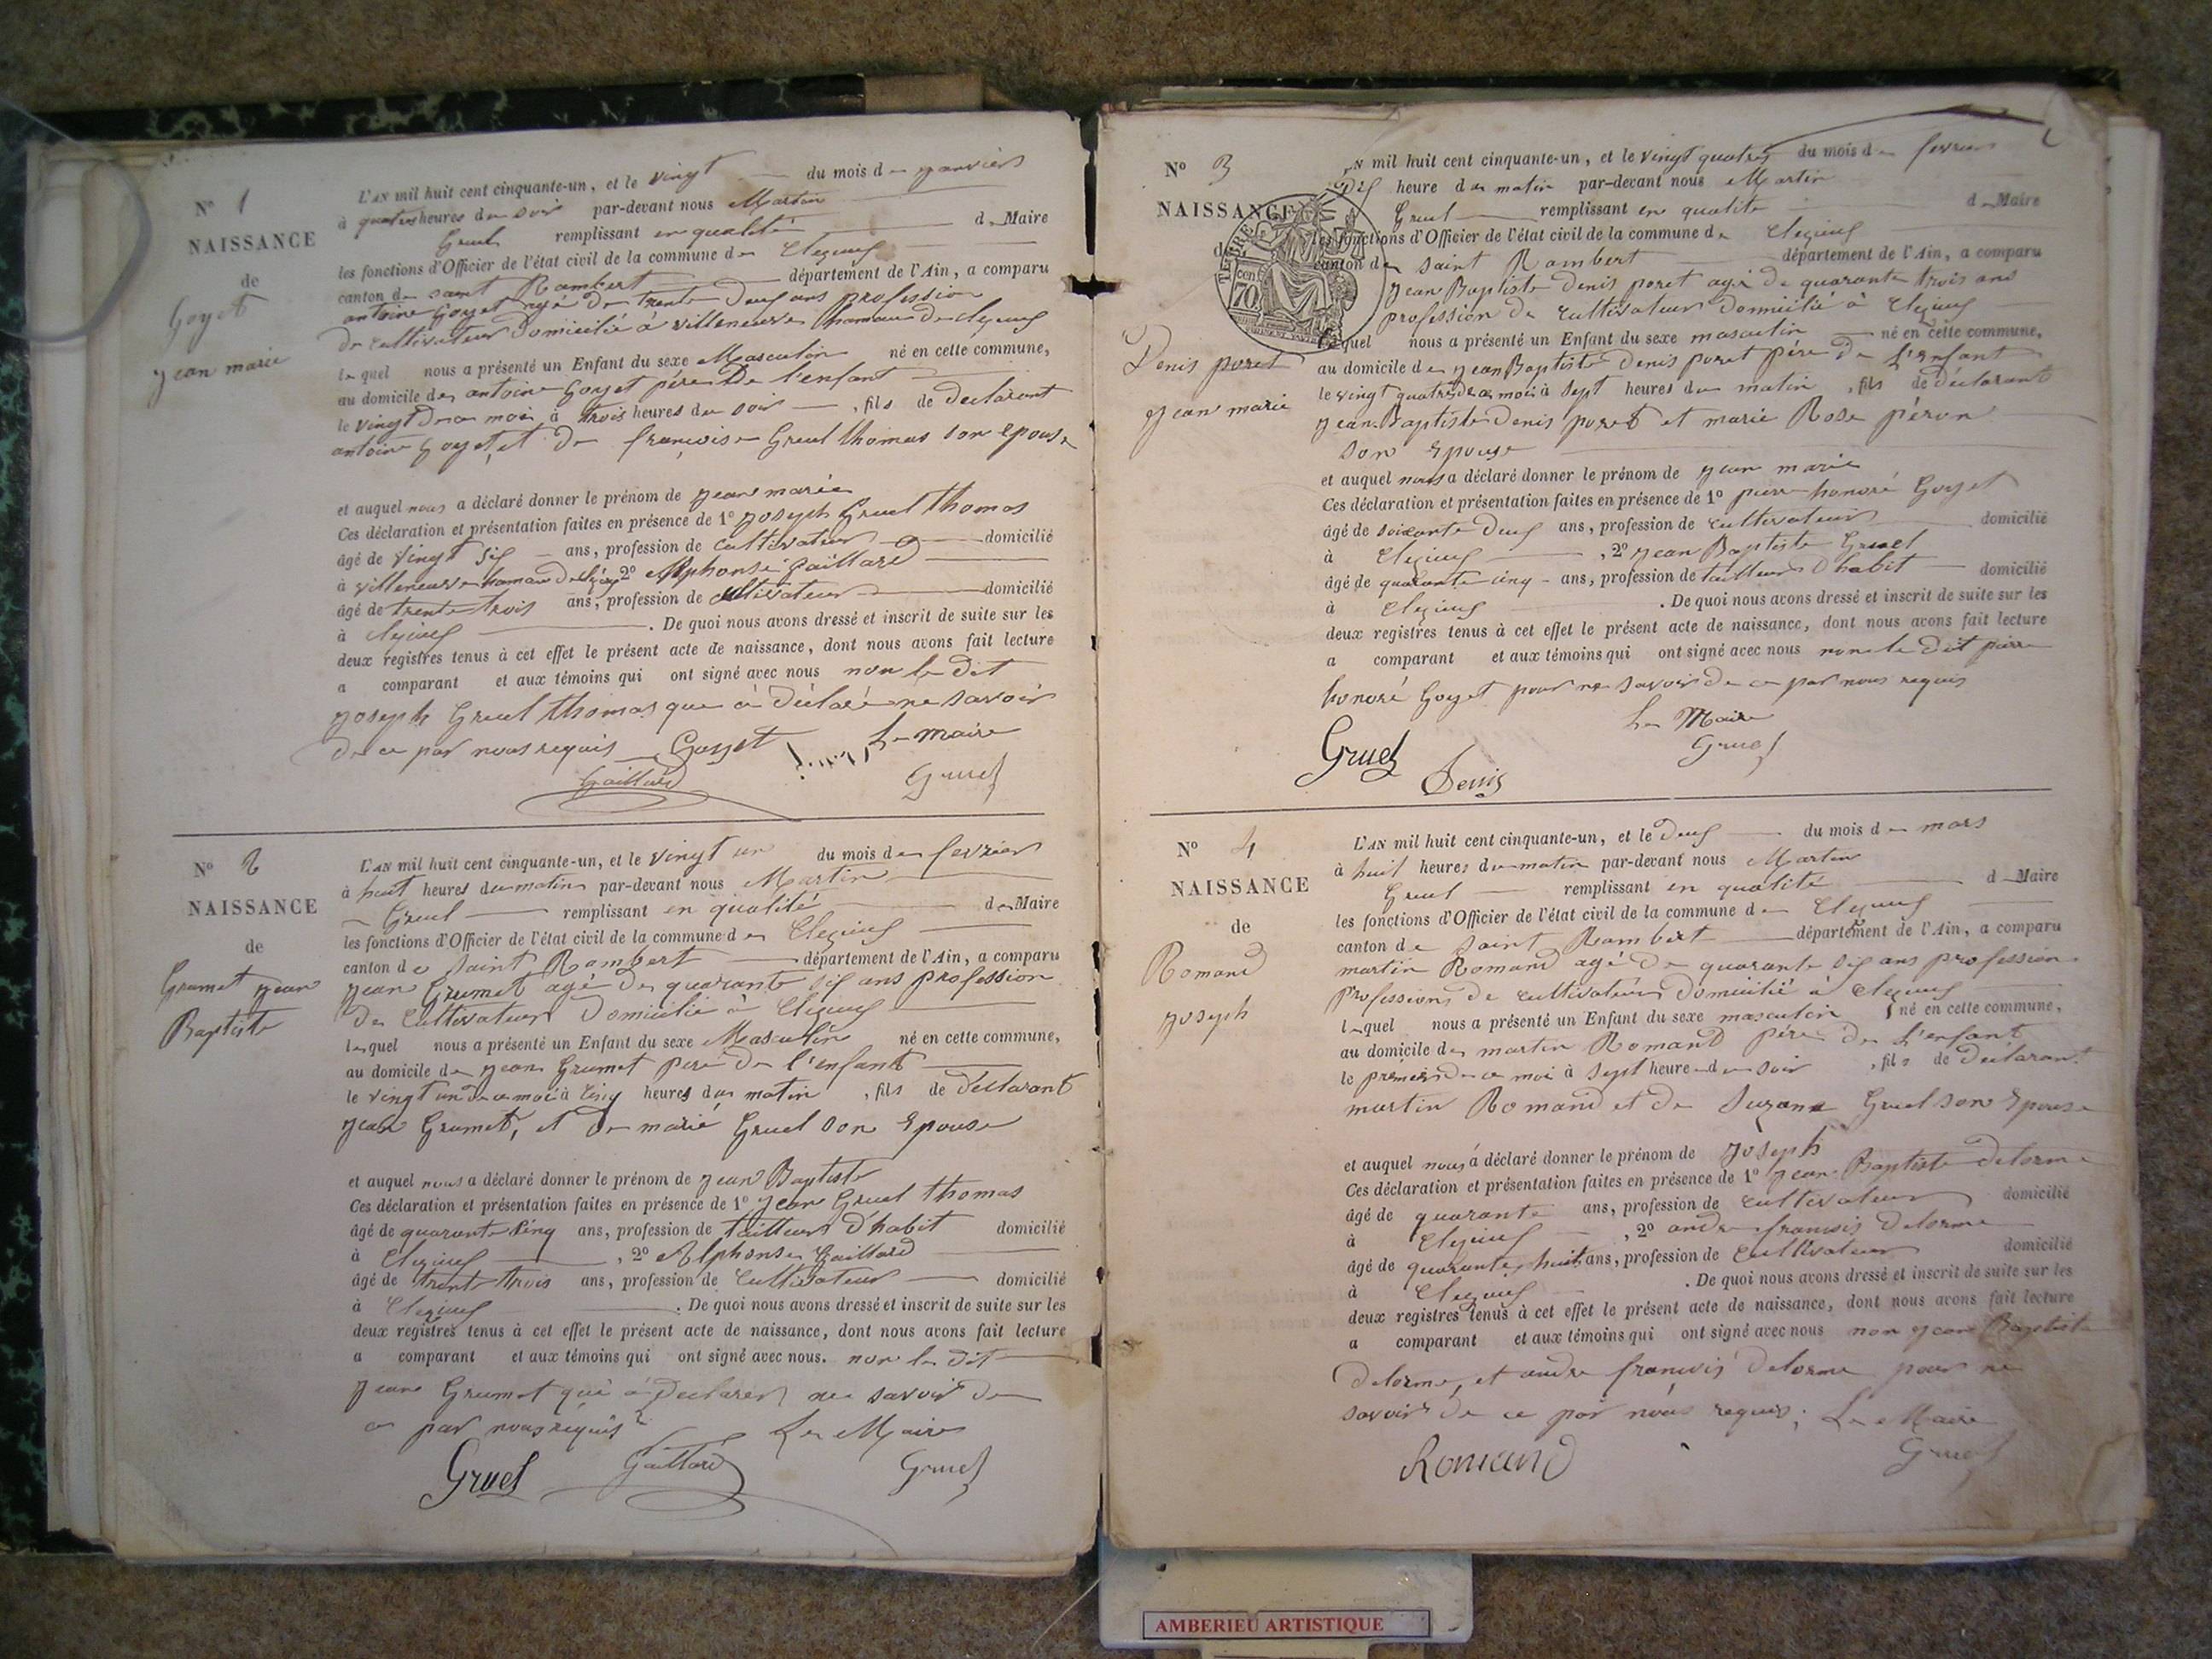 N° 1
NAISSANCE
de
Goyet
jean marie
L'AN mil huit cent cinquante-un, et le vingt du mois de janvier
à quatre heures du soir par-devant nous Martin
Gruel remplissant en qualité de Maire
les fonctions d'Officier de l'état civil de la commune de Cleyzieu
canton de saint Rambert département de l'Ain, a comparu
antoine Goyet agé de trente deux ans profession
de cultivateur domicilié à villeneuve hameau de cleyzieu
lequel nous a présenté un Enfant du sexe Masculin né en cette commune,
au domicile de antoine Goyet père De l'enfant
le vingt de ce mois à trois heures du soir, fils de Declarant
antoine Goyet, et De françoise Gruel thomas son epouse
et auquel nous a déclaré donner le prénom de jean marie
Ces déclaration et présentation faites en présence de 1° joseph Gruel thomas
âgé de vingt six ans, profession de cultivateur domicilié
à villeneuve hameau de 2° Alphonse Gaillard
âgé de trente trois ans, profession de cultivateur domicilié
à cleyzieu. De quoi nous avons dressé et inscrit de suite sur les
deux registres tenus à cet effet le présent acte de naissance, dont nous avons fait lecture
a comparant et aux témoins qui ont signé avec nous non le dit
joseph Gruel thomas que à déclaré ne savoir
de ce par nous requis Goyet Le maire
Gaillard Gruel
N° 2
NAISSANCE
de
Grumet jean
Baptiste
L'AN mil huit cent cinquante-un, et le vingt un du mois de fevrier
à huit heures du matin par-devant nous Martin
Gruel remplissant en qualité de Maire
les fonctions d'Officier de l'état civil de la commune de Cleyzieu
canton de Saint Rambert département de l'Ain, a comparu
jean Grumet agé de quarante six ans profession
de Cultivateur Domicilié à Cleyzieu
lequel nous a présenté un Enfant du sexe Masculin né en cette commune,
au domicile de jean Grumet père De l'enfant
le vingt un de ce mois à cinq heures du matin, fils de déclarant
jean Grumet, et De marie Gruel son Epouse
et auquel nous a déclaré donner le prénom de jean Baptiste
Ces déclaration et présentation faites en présence de 1° jean Gruel thomas
âgé de quarante cinq ans, profession de tailleur d'habit domicilié
à Cleyzieu, 2° Alphonse Gaillard
âgé de trente trois ans, profession de Cultivateur domicilié
à Cleyzieu. De quoi nous avons dressé et inscrit de suite sur les
deux registres tenus à cet effet le présent acte de naissance, dont nous avons fait lecture
a comparant et aux témoins qui ont signé avec nous. non le dit
jean Grumet qui à declarer ne savoir de
ce par nous requis Le Maire
Gruel Gaillard Gruel
N° 3
NAISSANCE
d
TIMBRE
70 cent
Denis poret
jean marie
N mil huit cent cinquante-un, et le vingt quatre du mois de fevrier
dix heure du matin par-devant nous Martin
Gruel remplissant en qualité de Maire
les fonctions d'Officier de l'état civil de la commune de Cleyzieu
canton de saint Rambert département de l'Ain, a comparu
jean Baptiste Denis poret agé de quarante trois ans
profession de cultivateur domicilié à Cleyzieu
lequel nous a présenté un Enfant du sexe masculin né en cette commune,
au domicile de jean Baptiste Denis poret père De L'enfant
le vingt quatre de ce mois à sept heures du matin, fils de déclarant
jean Baptiste Denis poret et marie Rose péron
son Epouse
et auquel nous a déclaré donner le prénom de jean marie
Ces déclaration et présentation faites en présence de 1° pierre honoré Goyet
âgé de soixante deux ans, profession de cultivateur domicilié
à Cleyzieu, 2° jean Baptiste Gruel
âgé de quarante cinq ans, profession de tailleur d'habit domicilié
à Cleyzieu. De quoi nous avons dressé et inscrit de suite sur les
deux registres tenus à cet effet le présent acte de naissance, dont nous avons fait lecture
a comparant et aux témoins qui ont signé avec nous non le dit pierre
honoré Goyet pour ne savoir de ce par nous requis
Le Maire
Gruel Denis Gruel
N° 4
NAISSANCE
de
Romand
joseph
L'AN mil huit cent cinquante-un, et le deux du mois de mars
à huit heures du matin par-devant nous Martin
Gruel remplissant en qualité d Maire
les fonctions d'Officier de l'état civil de la commune de Cleyzieu
canton de saint Rambert département de l'Ain, a comparu
martin Romand agé de quarante six ans profession
professions de cultivateur domicilié à Cleyzieu
lequel nous a présenté un Enfant du sexe masculin né en cette commune,
au domicile de martin Romand père De L'enfant
le premier de ce moi à sept heure du soir, fils de déclarant
martin Romand et de Suzane Gruel son Epouse
et auquel nous a déclaré donner le prénom de joseph
Ces déclaration et présentation faites en présence de 1° jean Baptiste delorme
âgé de quarante ans, profession de cultivateur domicilié
à Cleyzieu, 2° andre francois delorme
âgé de quarante huit ans, profession de Cultivateur domicilié
à Cleyzieu. De quoi nous avons dressé et inscrit de suite sur les
deux registres tenus à cet effet le présent acte de naissance, dont nous avons fait lecture
a comparant et aux témoins qui ont signé avec nous non jean Baptiste
delorme, et andre francois delorme pour ne
savoir de ce par nous requis; Le Maire
Romand Gruel
AMBERIEU ARTISTIQUE